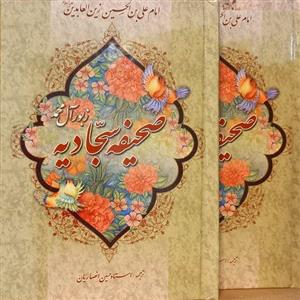 امام علی بن الحسین زین العابدین
زبور آل محمد
صحیفه سجادیه
ترجمه: استاد حسین انصاریان
امام علی بن الحسین زین العابدین
صحیفه سجادیه
ترجمه: استاد